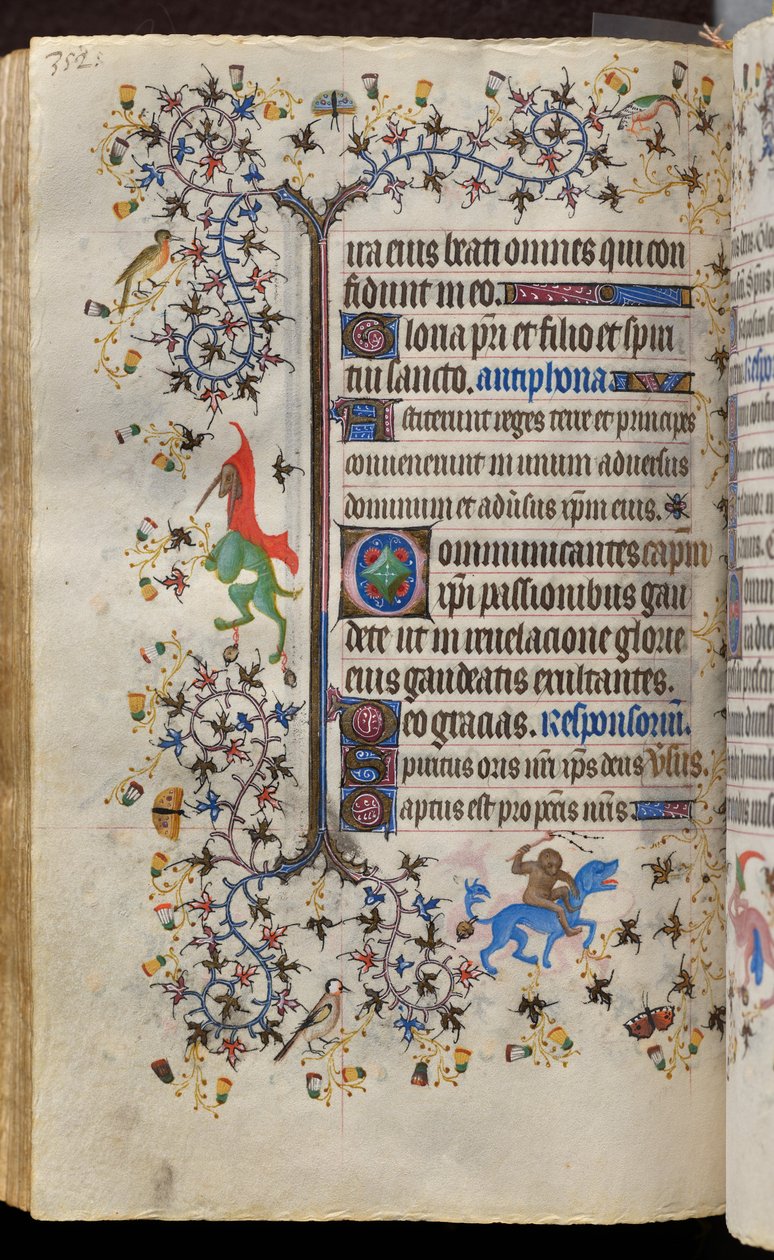 352.
ira eius beati omnes qui con
fidunt in eo.
Gloria pr̄i et filio et spiri
tui sancto. antiphona
Astiterunt reges terre et principes
convenerunt in unum adversus
dominum et adūsus xp̄m eius.
Communicantes cap̄m
xp̄i passionibus gau
dete ut in revelacione glorie
eius gaudeatis exultantes.
Deo gracias. Responsoriū.
Spiritus oris nr̄i xp̄s dn̄s v̄sus.
Captus est pro pcc̄is nr̄is